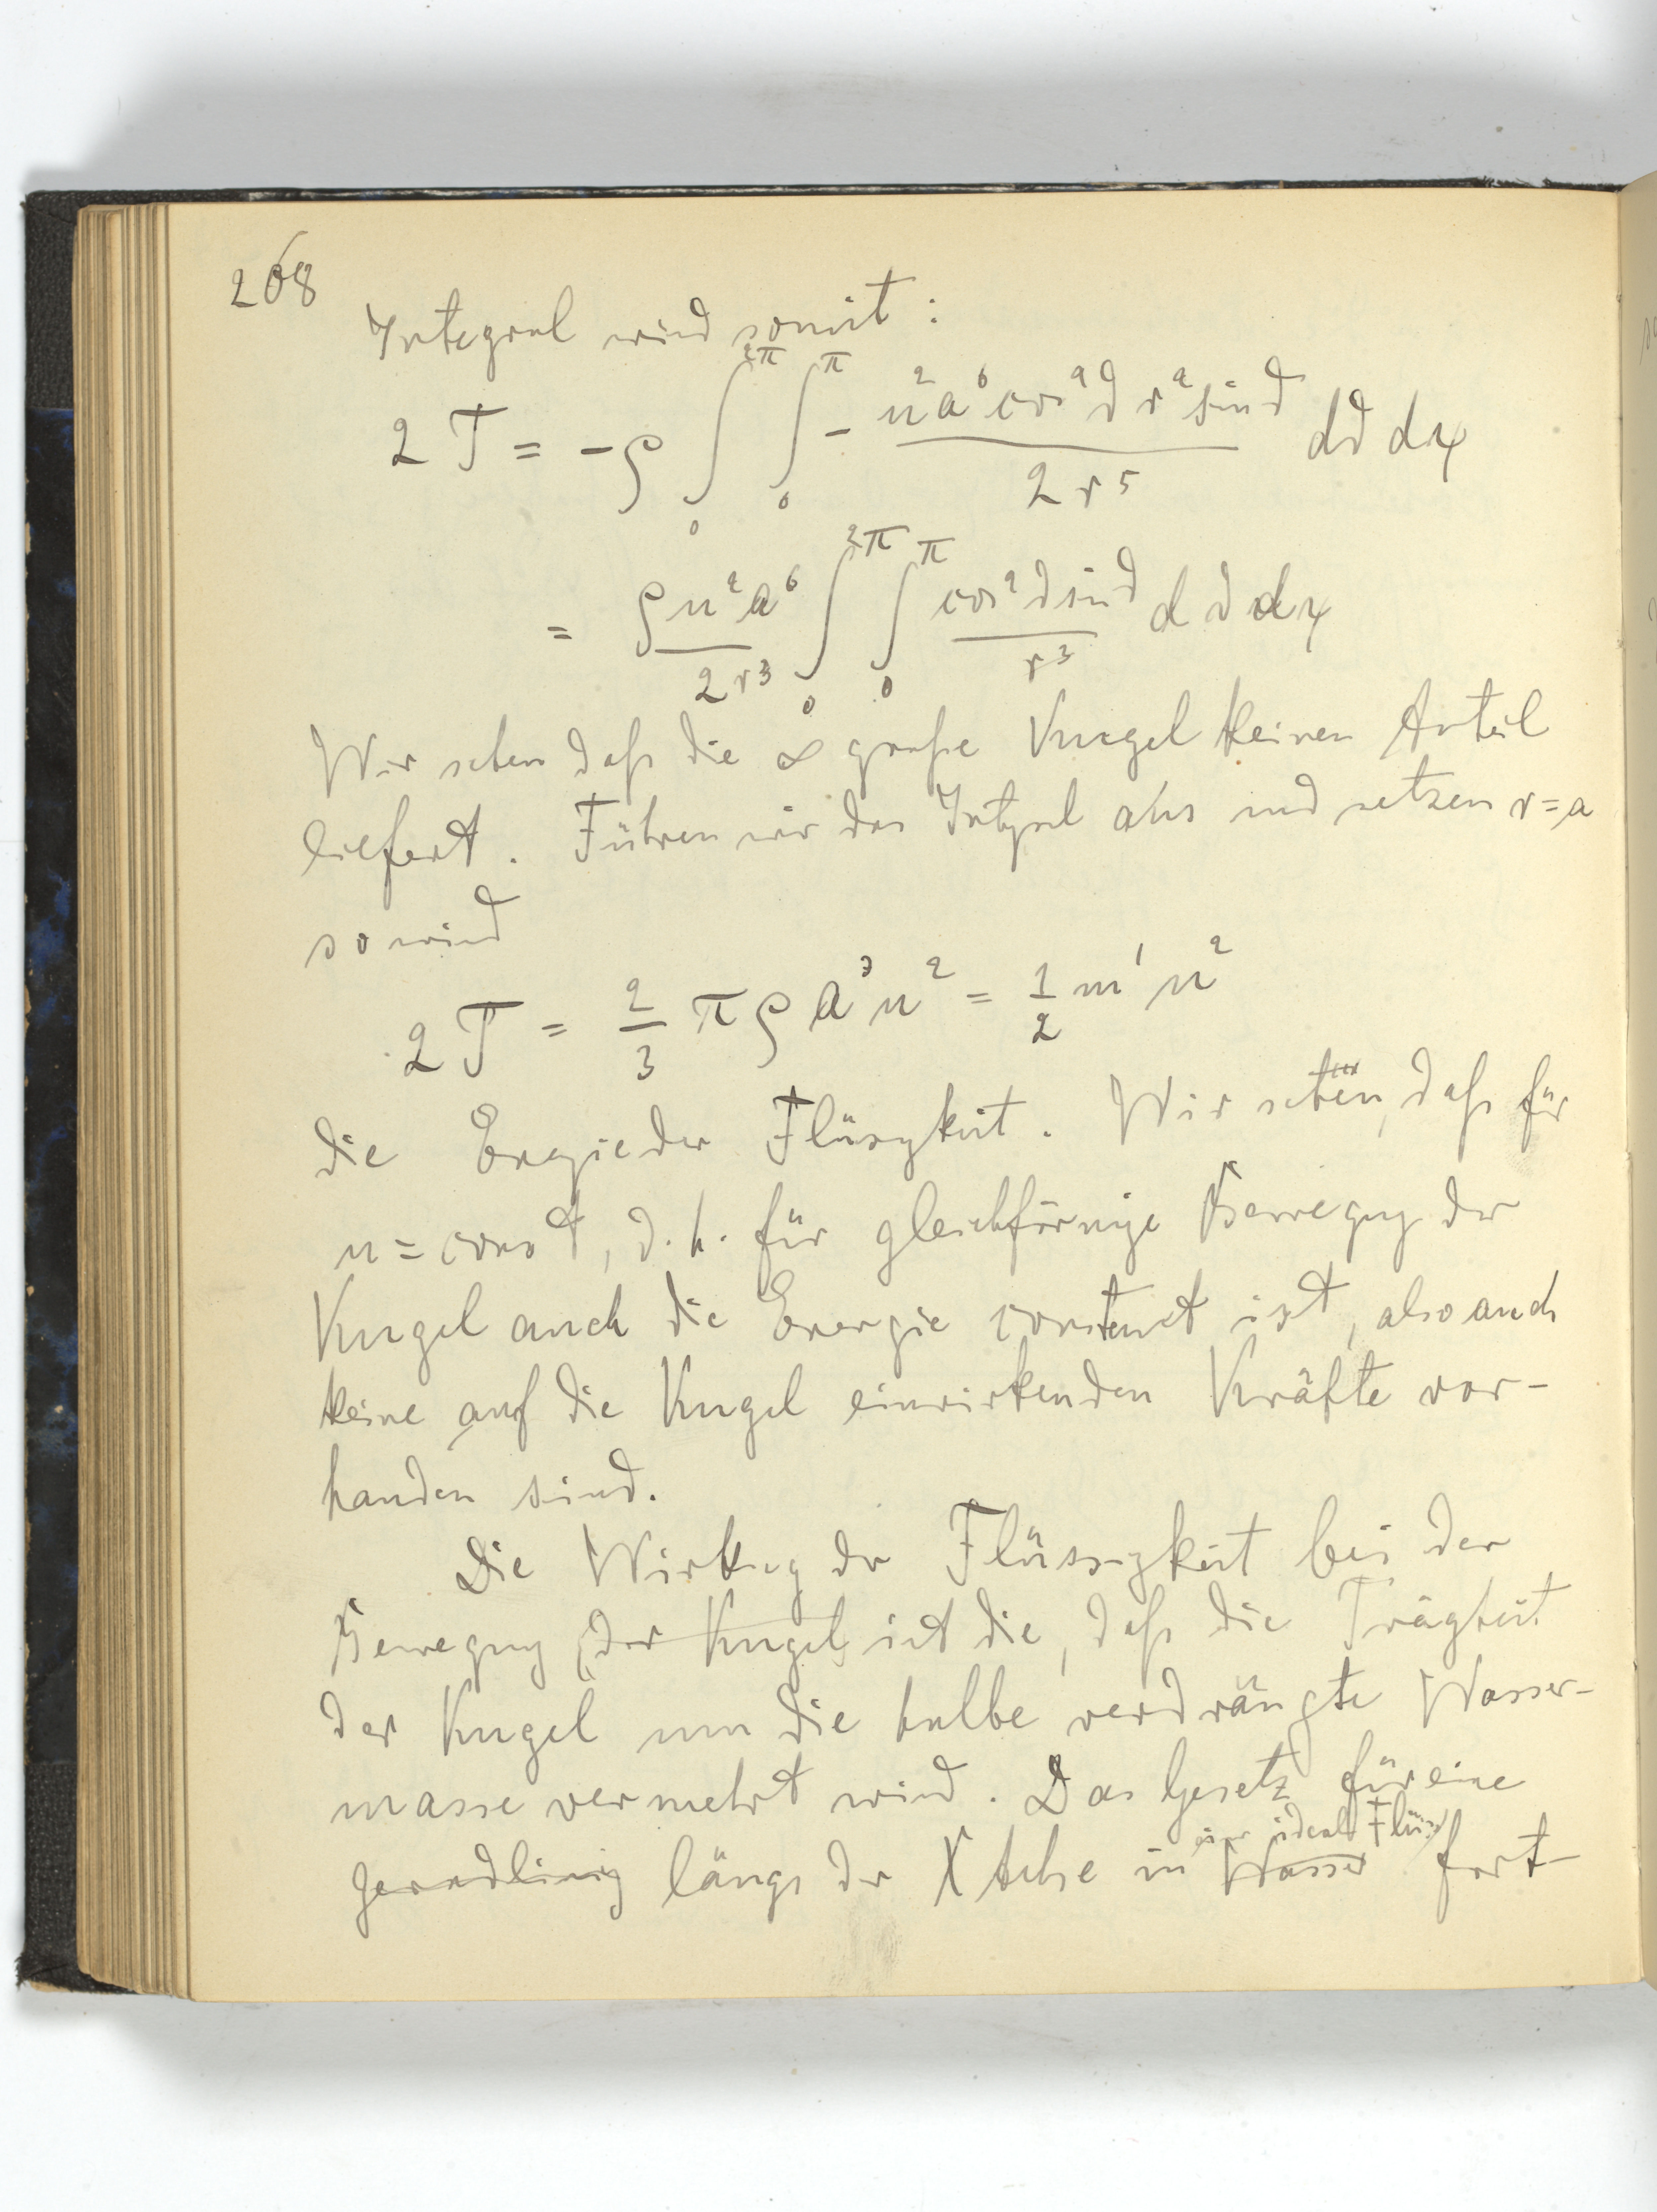 208
Integral wird somit:
2T = -ρ ∫₀^{2π} ∫₀^{π} - u²a⁶cos²ϑ r² sinϑ / 2r⁵ dϑ dψ
= ρu²a⁶ / 2r³ ∫₀^{2π} ∫₀^{π} cos²ϑ sinϑ / r³ dϑ dψ
Wir sehen daß die ∞ große Kugel keinen Anteil
liefert. Führen wir das Integral aus und setzen r=a
so wird
2T = 2/3 πρ a³u² = 1/2 m' u²
die Energie der Flüssigkeit. Wir sehen, daß für
u = const, d.h. für gleichförmige Bewegung der
Kugel auch die Energie constant ist, also auch
keine auf die Kugel einwirkenden Kräfte vor-
handen sind.
Die Wirkung der Flüssigkeit bei der
Bewegung der Kugel ist die, daß die Trägheit
der Kugel um die halbe verdrängte Wasser-
masse vermehrt wird. Das Gesetz für eine
einer ideale Flüss
geradlinig längs der X Achse in Wasser fort-